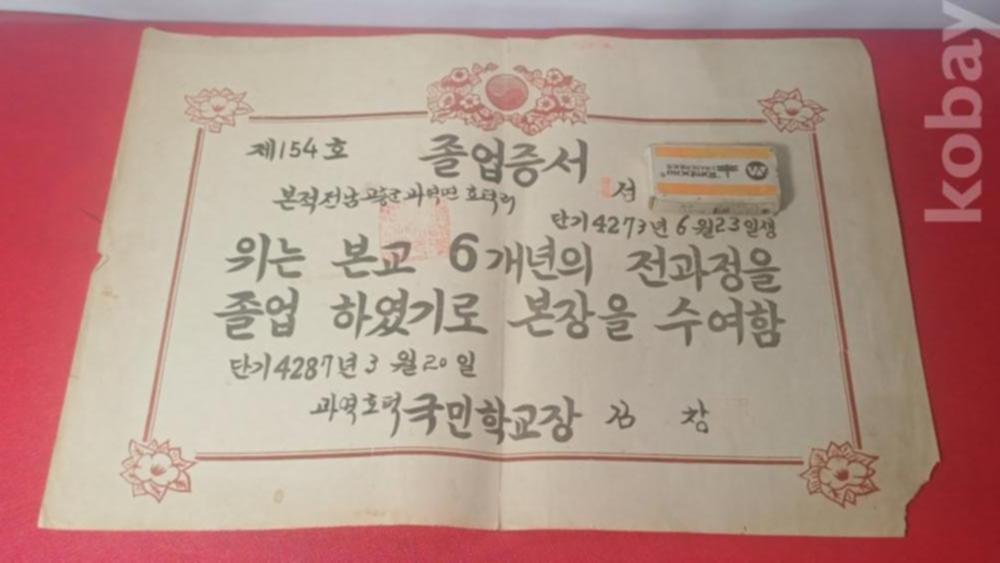 제154호 졸업증서
본적전남고흥군과역면호덕리 선
단기4273년 6월23일생
위는 본교 6개년의 전과정을
졸업 하였기로 본장을 수여함
단기4287년 3월 20일
과역호덕국민학교장 김 참
TOMBOW
kobay